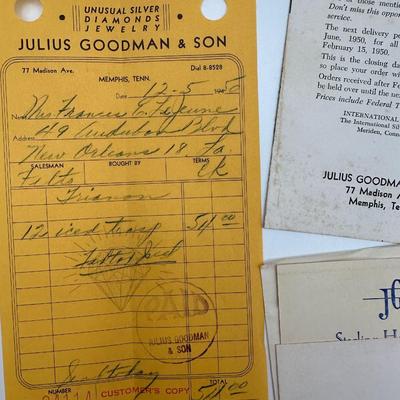 UNUSUAL SILVER
DIAMONDS
JEWELRY
JULIUS GOODMAN & SON
77 Madison Ave. Dial 8-8528
MEMPHIS, TENN.
Date 12-5 1950
Name Mrs. Frances E. Lejeune
Address 49 Audubon Blvd
New Orleans 18 La.
SALESMAN BOUGHT BY TERMS
Fitts ck
Trianon
12 iced teas 54 00
PAID
JULIUS GOODMAN
& SON
TOTAL
NUMBER CUSTOMER'S COPY 54 00
of those mention
Don't miss this oppor
service.
The next delivery pe
June, 1950, for all
February 15, 1950.
This is the closing da
so place your order wi
Orders received after Fe
be held over until the nex
Prices include Federal T
INTERNATIONAL
The International Sil
Meriden, Conne
JULIUS GOODMA
77 Madison A
Memphis, Te
JG
Sterling H